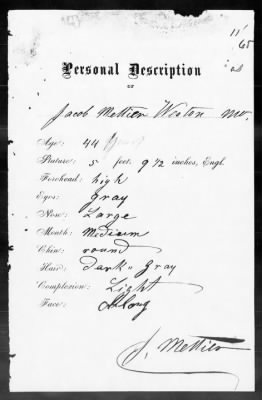 11/
65
Personal Description
OF
Jacob Mettier Weston Mo.
Age: 44
Stature: 5 feet, 9 1/2 inches, Engl.
Forehead: high
Eyes: Gray
Nose: Large
Mouth: Medium
Chin: round
Hair: Dark Gray
Complexion: Light
Face: Long
J. Mettier